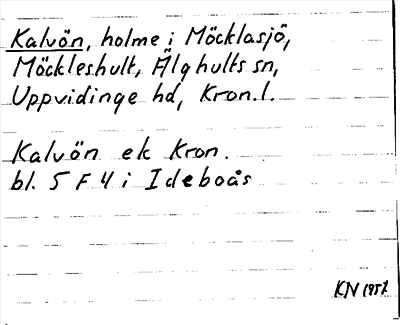 Kalvön, holme i Möcklasjö,
Möckleshult, Älghults sn,
Uppvidinge hd, Kron.l.
Kalvön ek Kron.
bl. 5 F 4 i Ideboås
KN